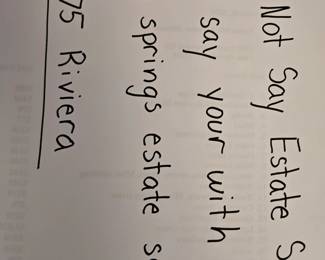 Not Say Estate S
say your with
springs estate sa
75 Riviera